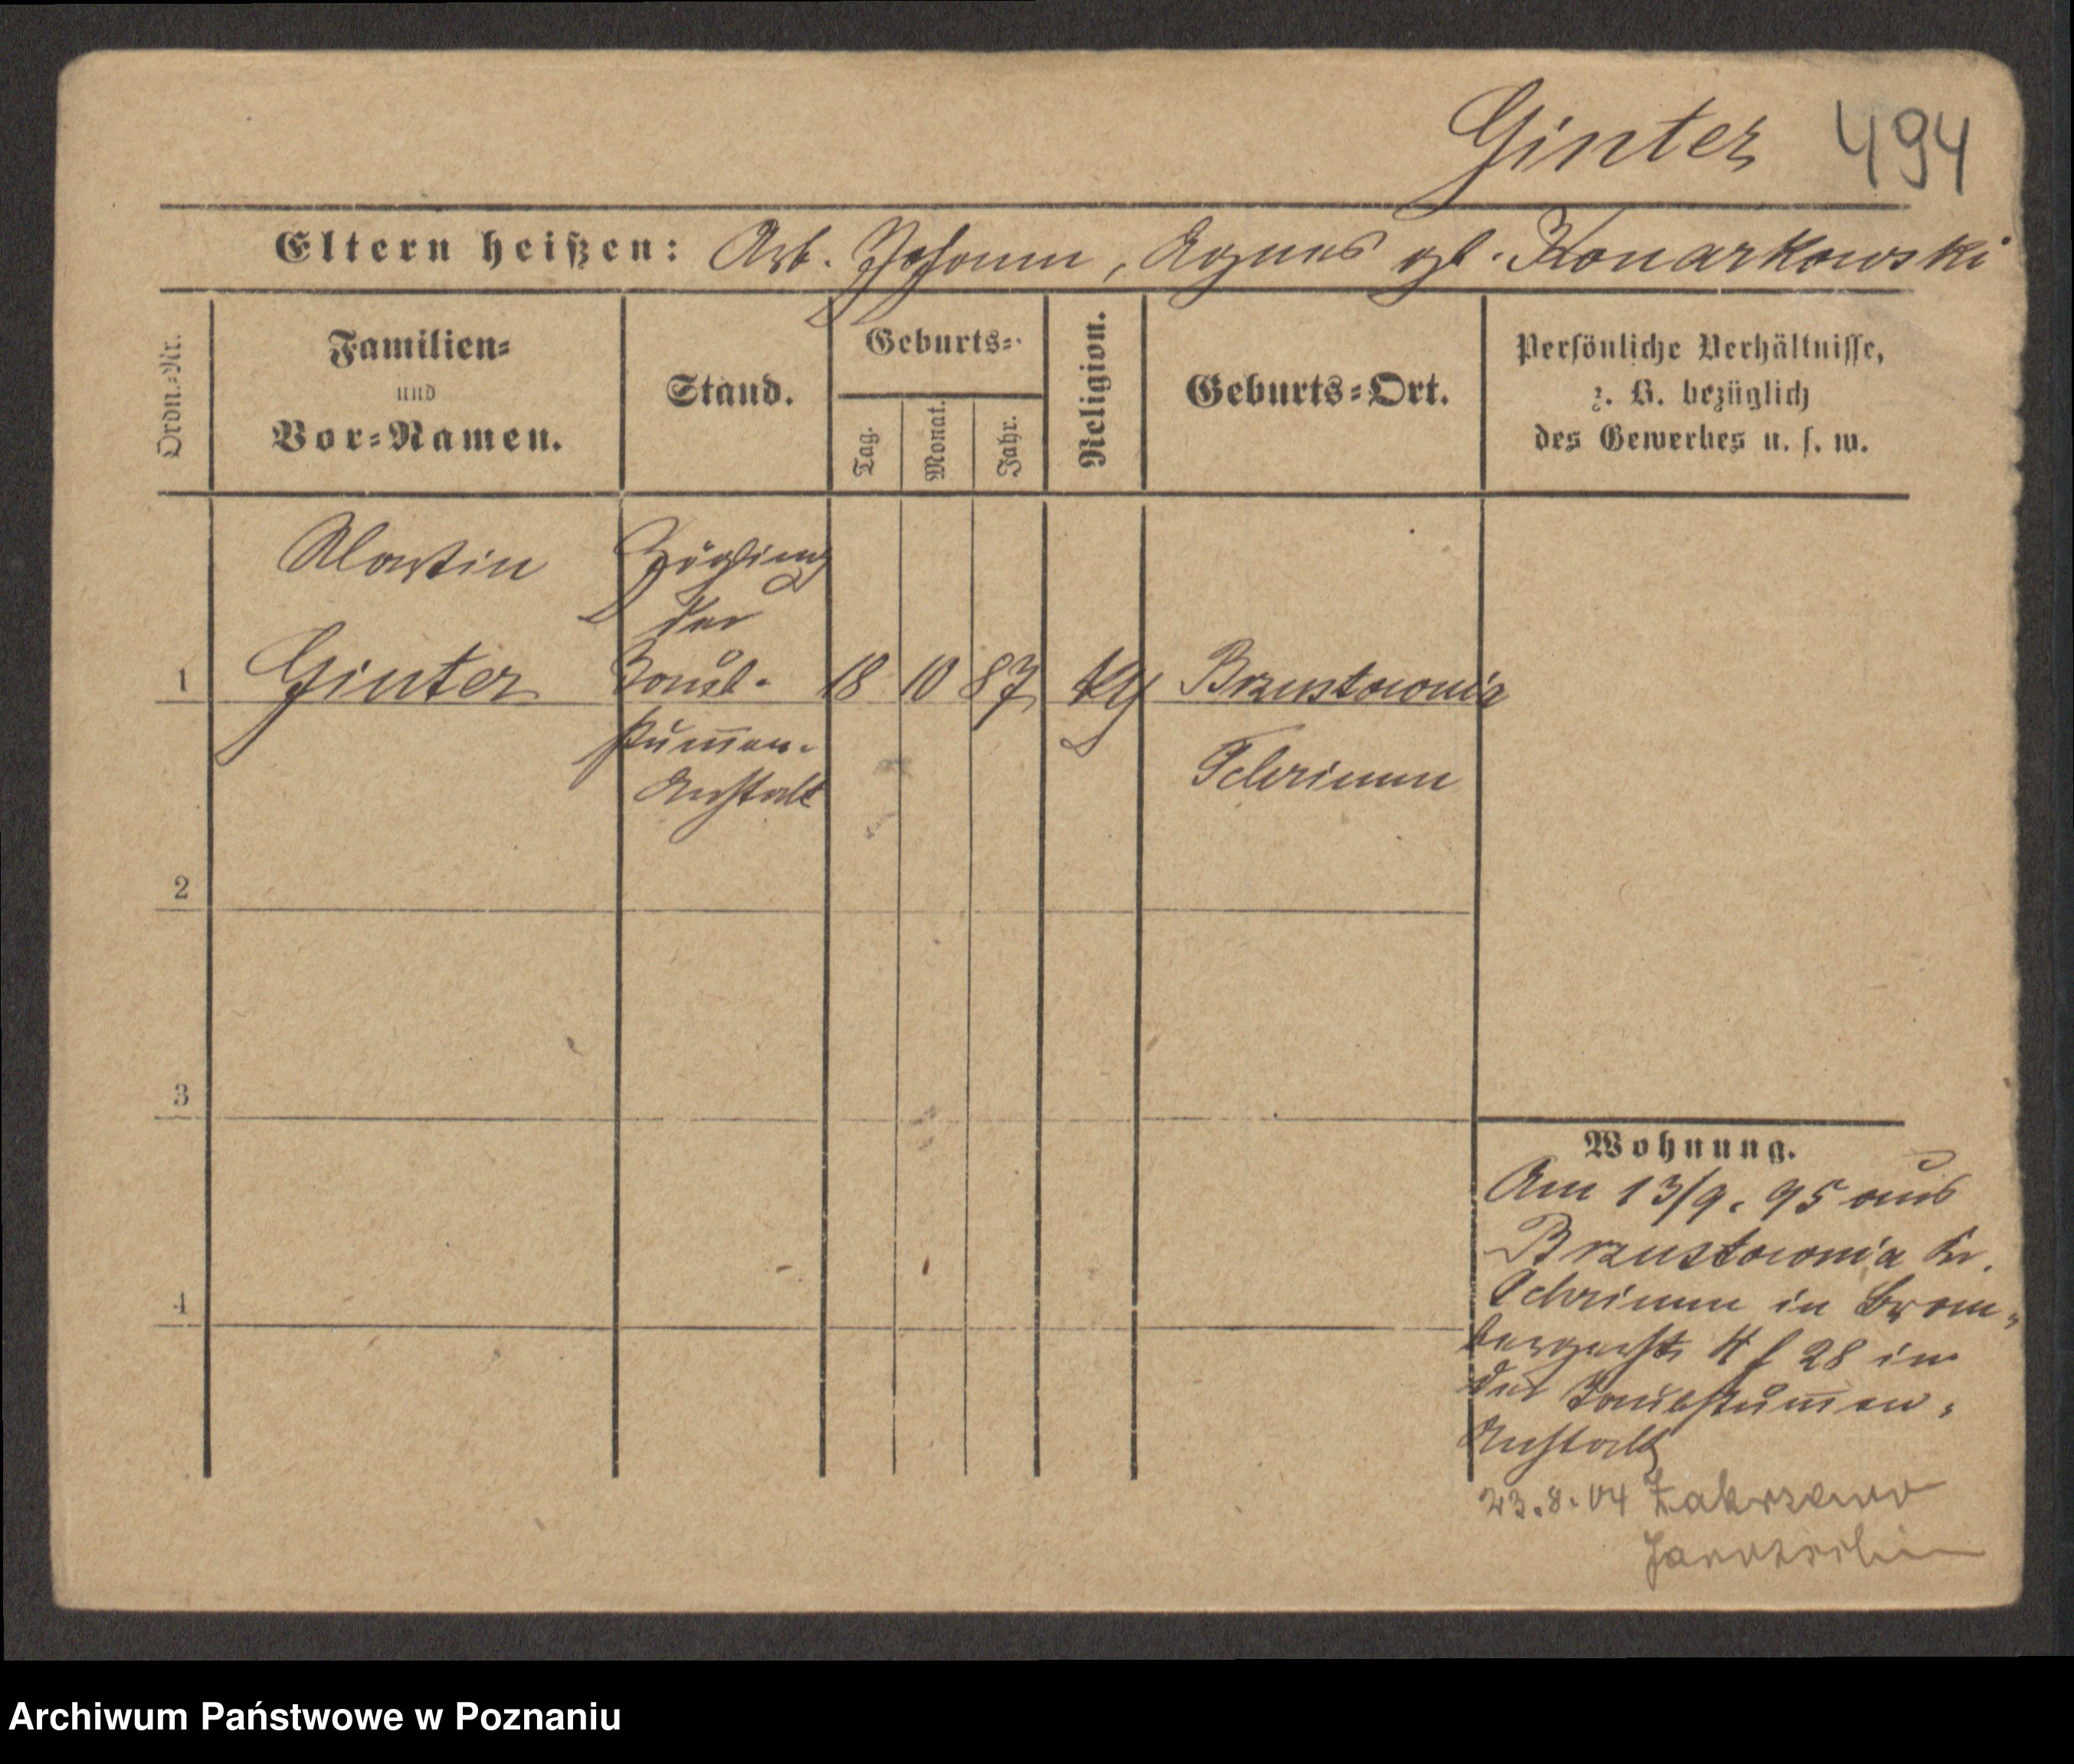 Ginter 494
Eltern heißen: Arb. Johann, Agnes gb. Konarkowski
Ordn.=Nr.
Familien=
und
Vor=Namen.
Stand.
Geburts=
Tag.
Monat.
Jahr.
Religion.
Geburts=Ort.
Persönliche Verhältnisse,
z. B. bezüglich
des Gewerbes u. s. w.
Martin
Zögling
der
1 Ginter Taub- 18 10 87 Brzustownia
stum̄en-
Anstalt
Schrimm
2
3
4
Wohnung.
Am 13/9. 95 aus
Brzustownia Kr.
Schrimm in Brom=
bergerstr 28 in
der Taubstum̄en=
Anstalt
23.8.04 Zakrzewo